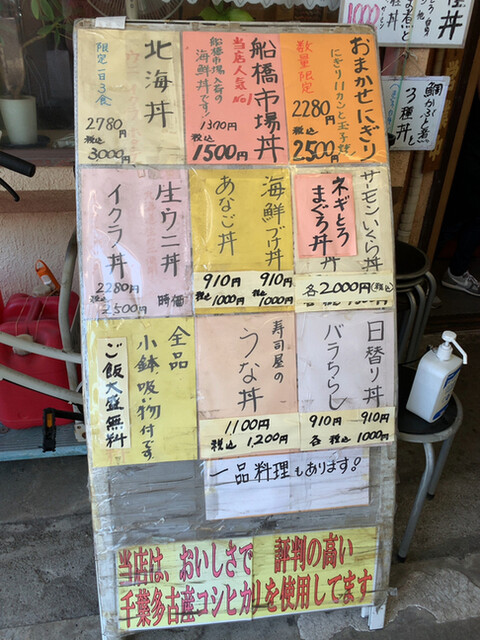 おまかせにぎり
にぎり11カンと玉子焼
数量限定
2280円
税込
2500円
船橋市場丼
当店人気No1
船橋市場入荷の
海鮮丼です!
1370円
税込
1500円
北海丼
限定一日3食
2780円
税込
3000円
サーモンいくら丼
ネギとろ
まぐろ丼
各2,000円(税込)
海鮮づけ丼
910円
税込
1000円
あなご丼
910円
税込
1000円
生ウニ丼
時価
イクラ丼
2280円
税込
2500円
日替り丼
910円
バラちらし
910円
各税込1000円
寿司屋の
うな丼
1100円
税込
1200円
全品
小鉢吸い物付です。
ご飯大盛無料
一品料理もあります!
当店は、おいしさで 評判の高い
千葉多古産コシヒカリを使用してます